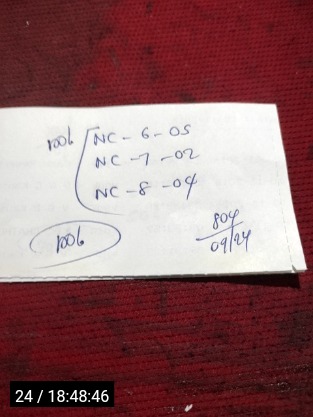 1006 NC - 6 - 05
NC - 7 - 02
NC - 8 - 04
1006
804
09/24
24 / 18:48:46